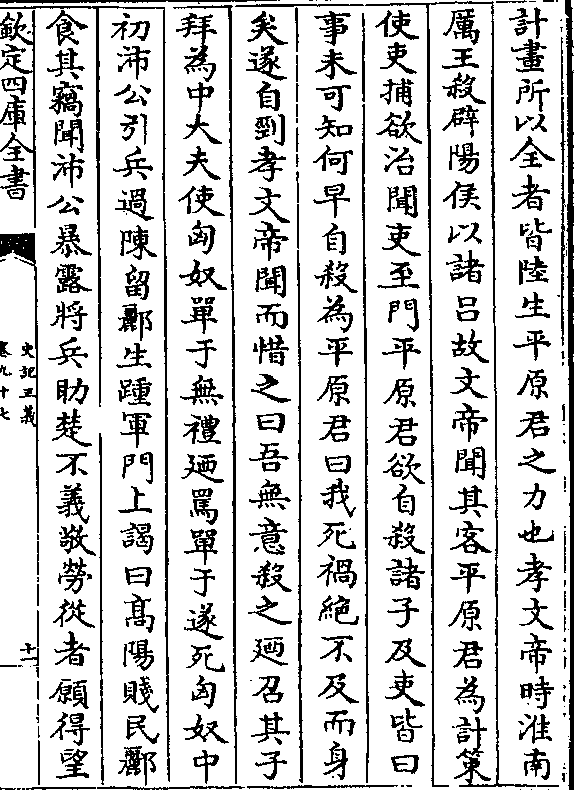 計畫所以全者皆陸生平原君之力也孝文帝時淮南
厲王殺辟陽侯以諸吕故文帝聞其客平原君為計策
使吏捕欲治聞吏至門平原君欲自殺諸子及吏皆曰
事未可知何早自殺為平原君曰我死禍絶不及而身
矣遂自剄孝文帝聞而惜之曰吾無意殺之廼召其子
拜為中大夫使匈奴單于無禮廼罵單于遂死匈奴中
初沛公引兵過陳留酈生踵軍門上謁曰髙陽賤民酈
食其竊聞沛公暴露將兵助楚不義敬勞從者願得望
欽定四庫全書
史記正義
卷九十七
十一